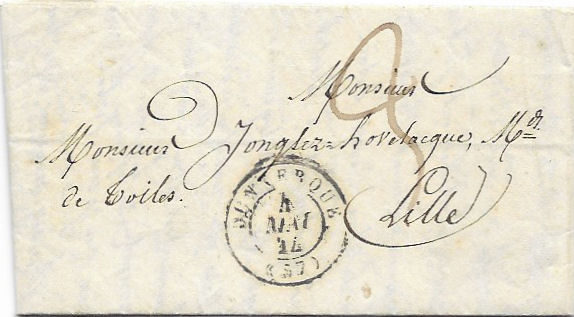 Monsieur
Monsieur Jonglez=hovelacque, Md.
de Toiles.
Lille
DUNKERQUE
4
MAI
(57)